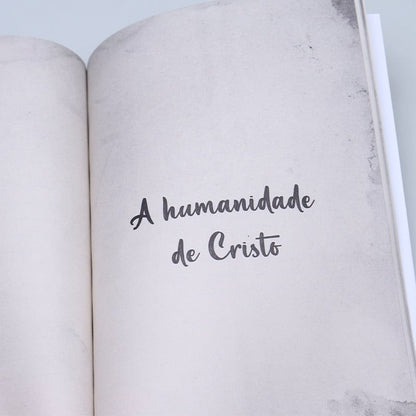 A humanidade
de Cristo